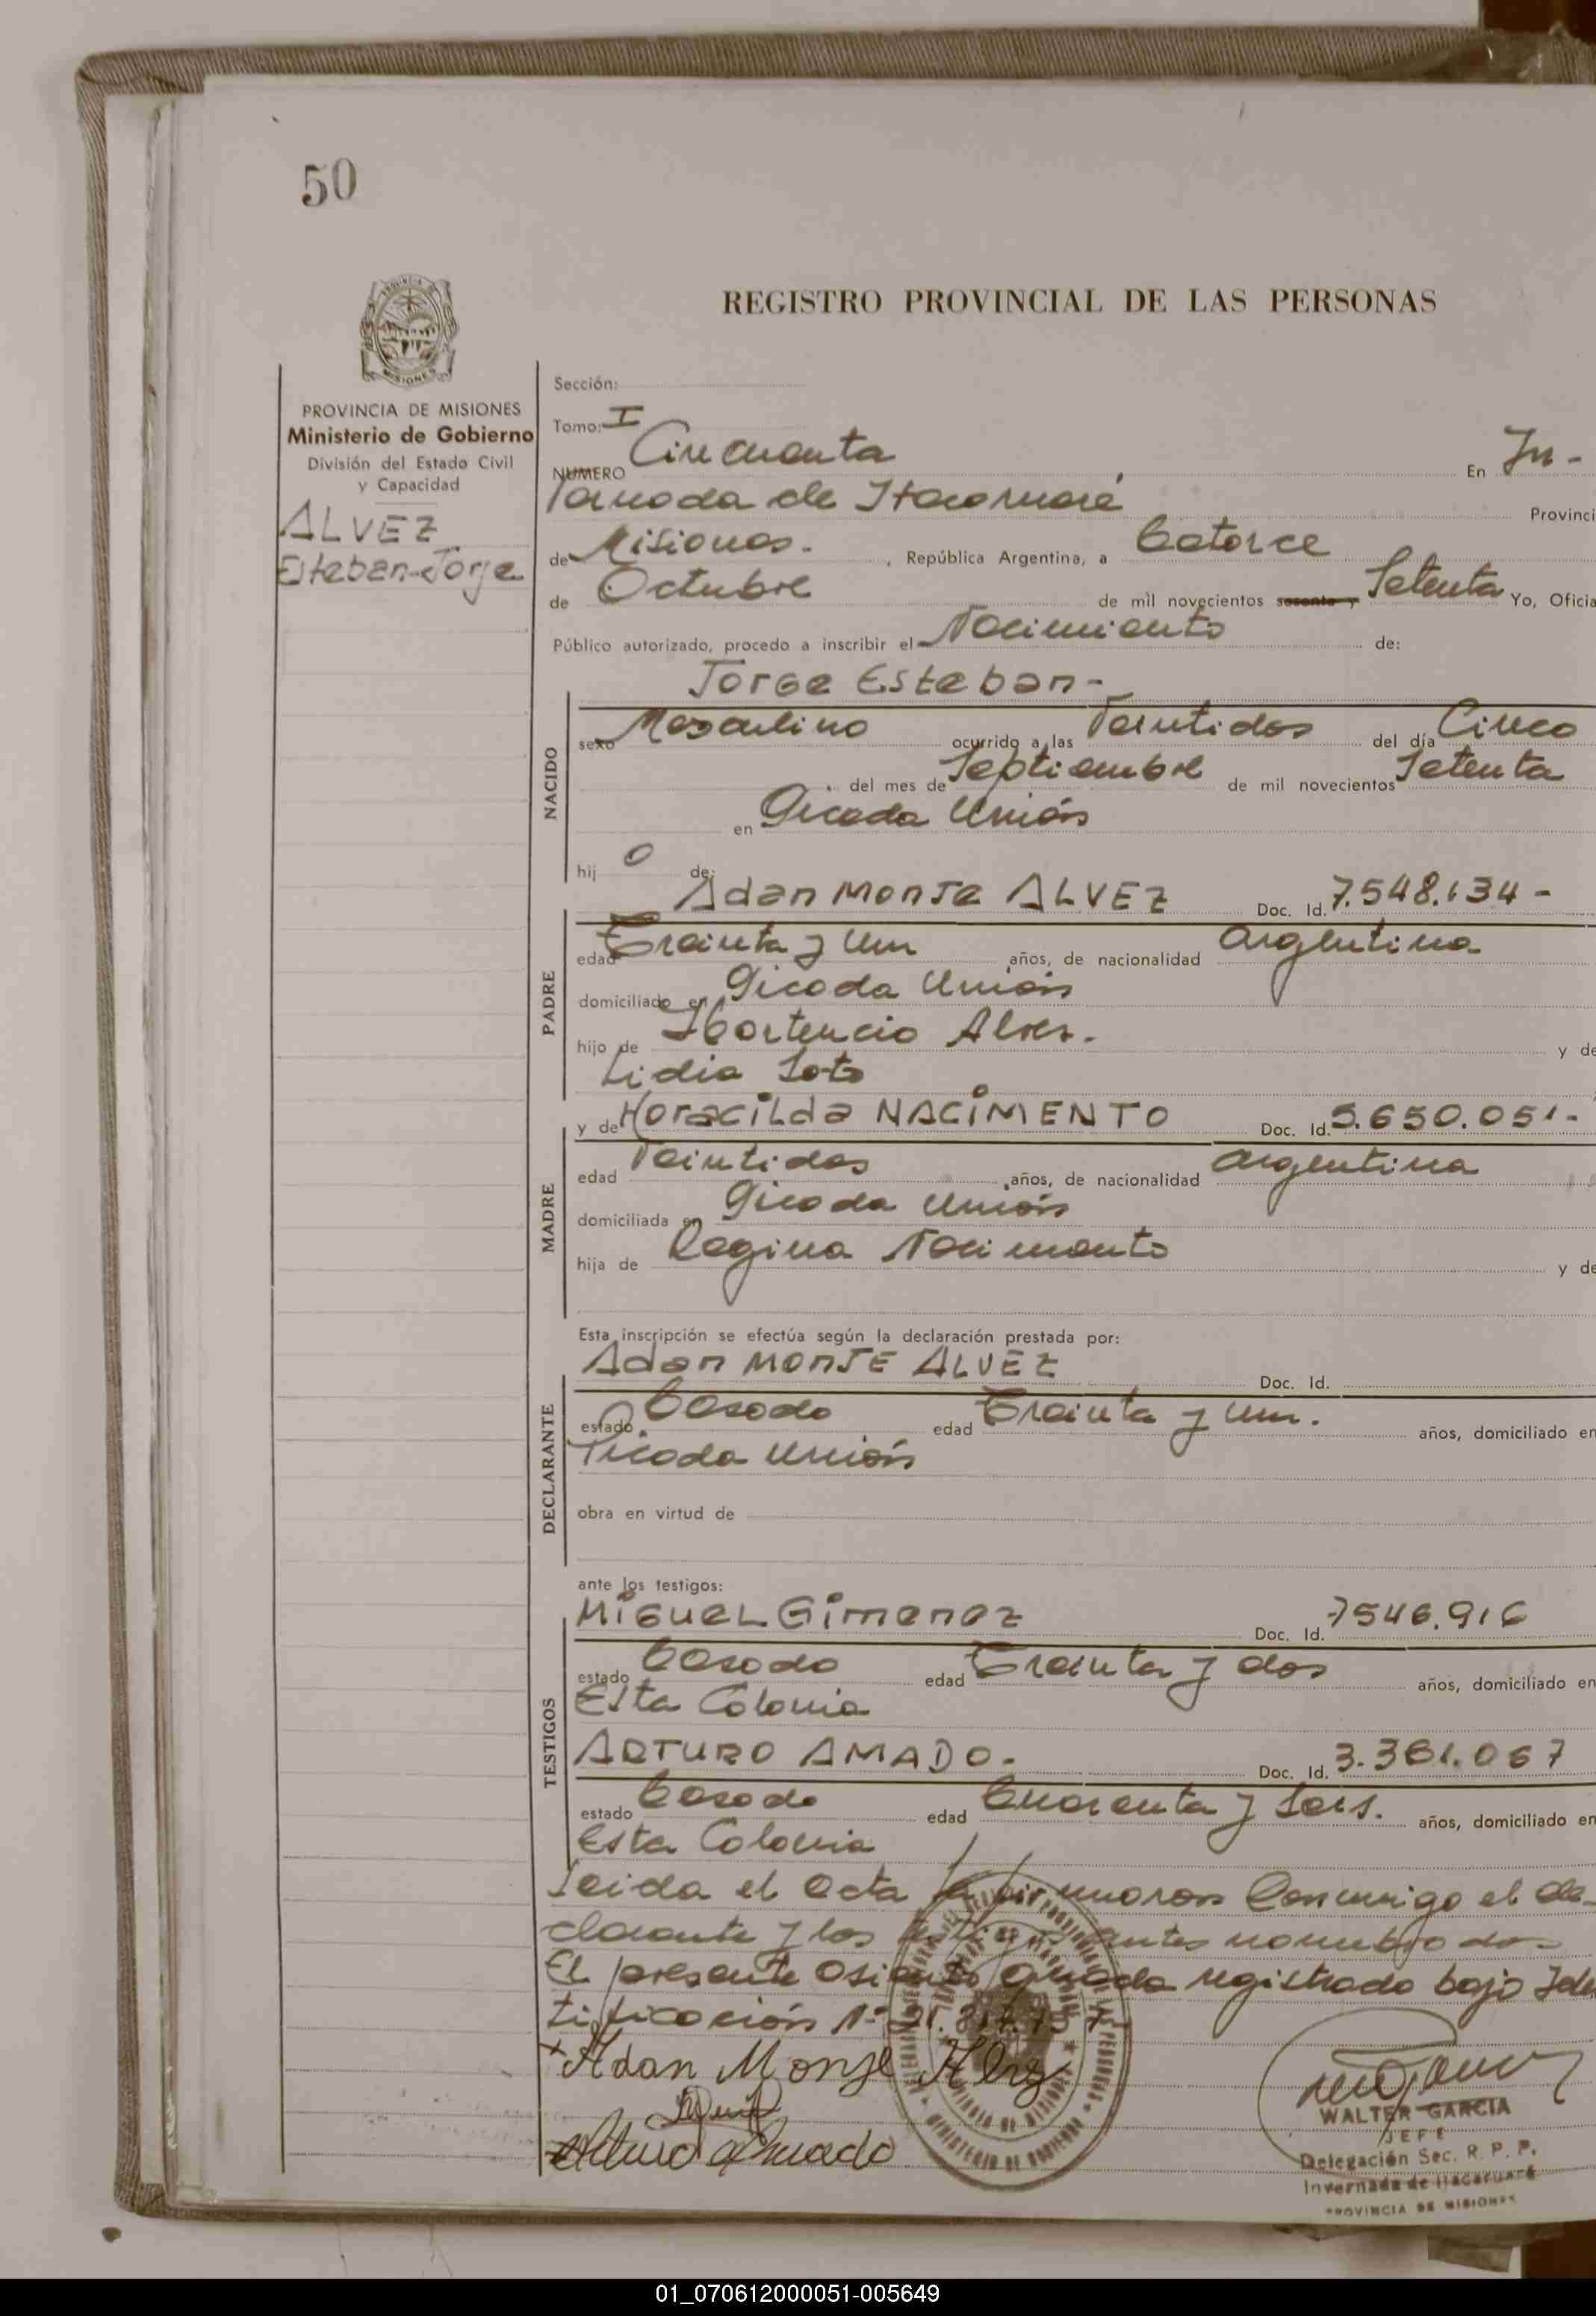 50
REGISTRO PROVINCIAL DE LAS PERSONAS
MISIONES
PROVINCIA DE MISIONES
Ministerio de Gobierno
División del Estado Civil
y Capacidad
ALVEZ
Esteban-Jorge
Sección:
Tomo: I
NUMERO Cincuenta En In-
vernada de Itacaruaré Provinci
de Misiones. , República Argentina, a Catorce
de Octubre de mil novecientos sesenta y Setenta Yo, Oficia
Público autorizado, procedo a inscribir el Nacimiento de:
Jorge Esteban-
NACIDO
sexo Masculino ocurrido a las Veintidos del día Cinco
del mes de Septiembre de mil novecientos Setenta
en Picada Unión
hij o de:
PADRE
Adan Monje ALVEZ Doc. Id. 7.548.134-
edad Treinta y Un años, de nacionalidad Argentina
domiciliado en Picada Unión
hijo de Hortencio Alves. y de
Lidia Soto
MADRE
y de Horacilda NACIMIENTO Doc. Id. 5.650.051-
edad Veintidos años, de nacionalidad Argentina
domiciliada en Picada Unión
hija de Regina Nacimento y de
Esta inscripción se efectúa según la declaración prestada por:
DECLARANTE
Adan MONJE ALVEZ Doc. Id.
estado Casado edad Treinta y Un. años, domiciliado en
Picada Unión
obra en virtud de
ante los testigos:
TESTIGOS
MIGUEL Gimenez Doc. Id. 7546.916
estado Casado edad Treinta y dos años, domiciliado en
Esta Colonia
ARTURO AMADO. Doc. Id. 3.361.067
estado Casado edad Cuarenta y Seis. años, domiciliado en
Esta Colonia
Leida el Acta la firmaron Conmigo el de-
clarante y los testigos antes nombrados
El presente Asiento queda registrado bajo Iden
tificación Nº
x Adan Monje Alvez
Arturo Amado
WALTER GARCIA
JEFE
Delegación Sec. R. P. P.
Invernada de Itacaruaré
PROVINCIA DE MISIONES
01_070612000051-005649